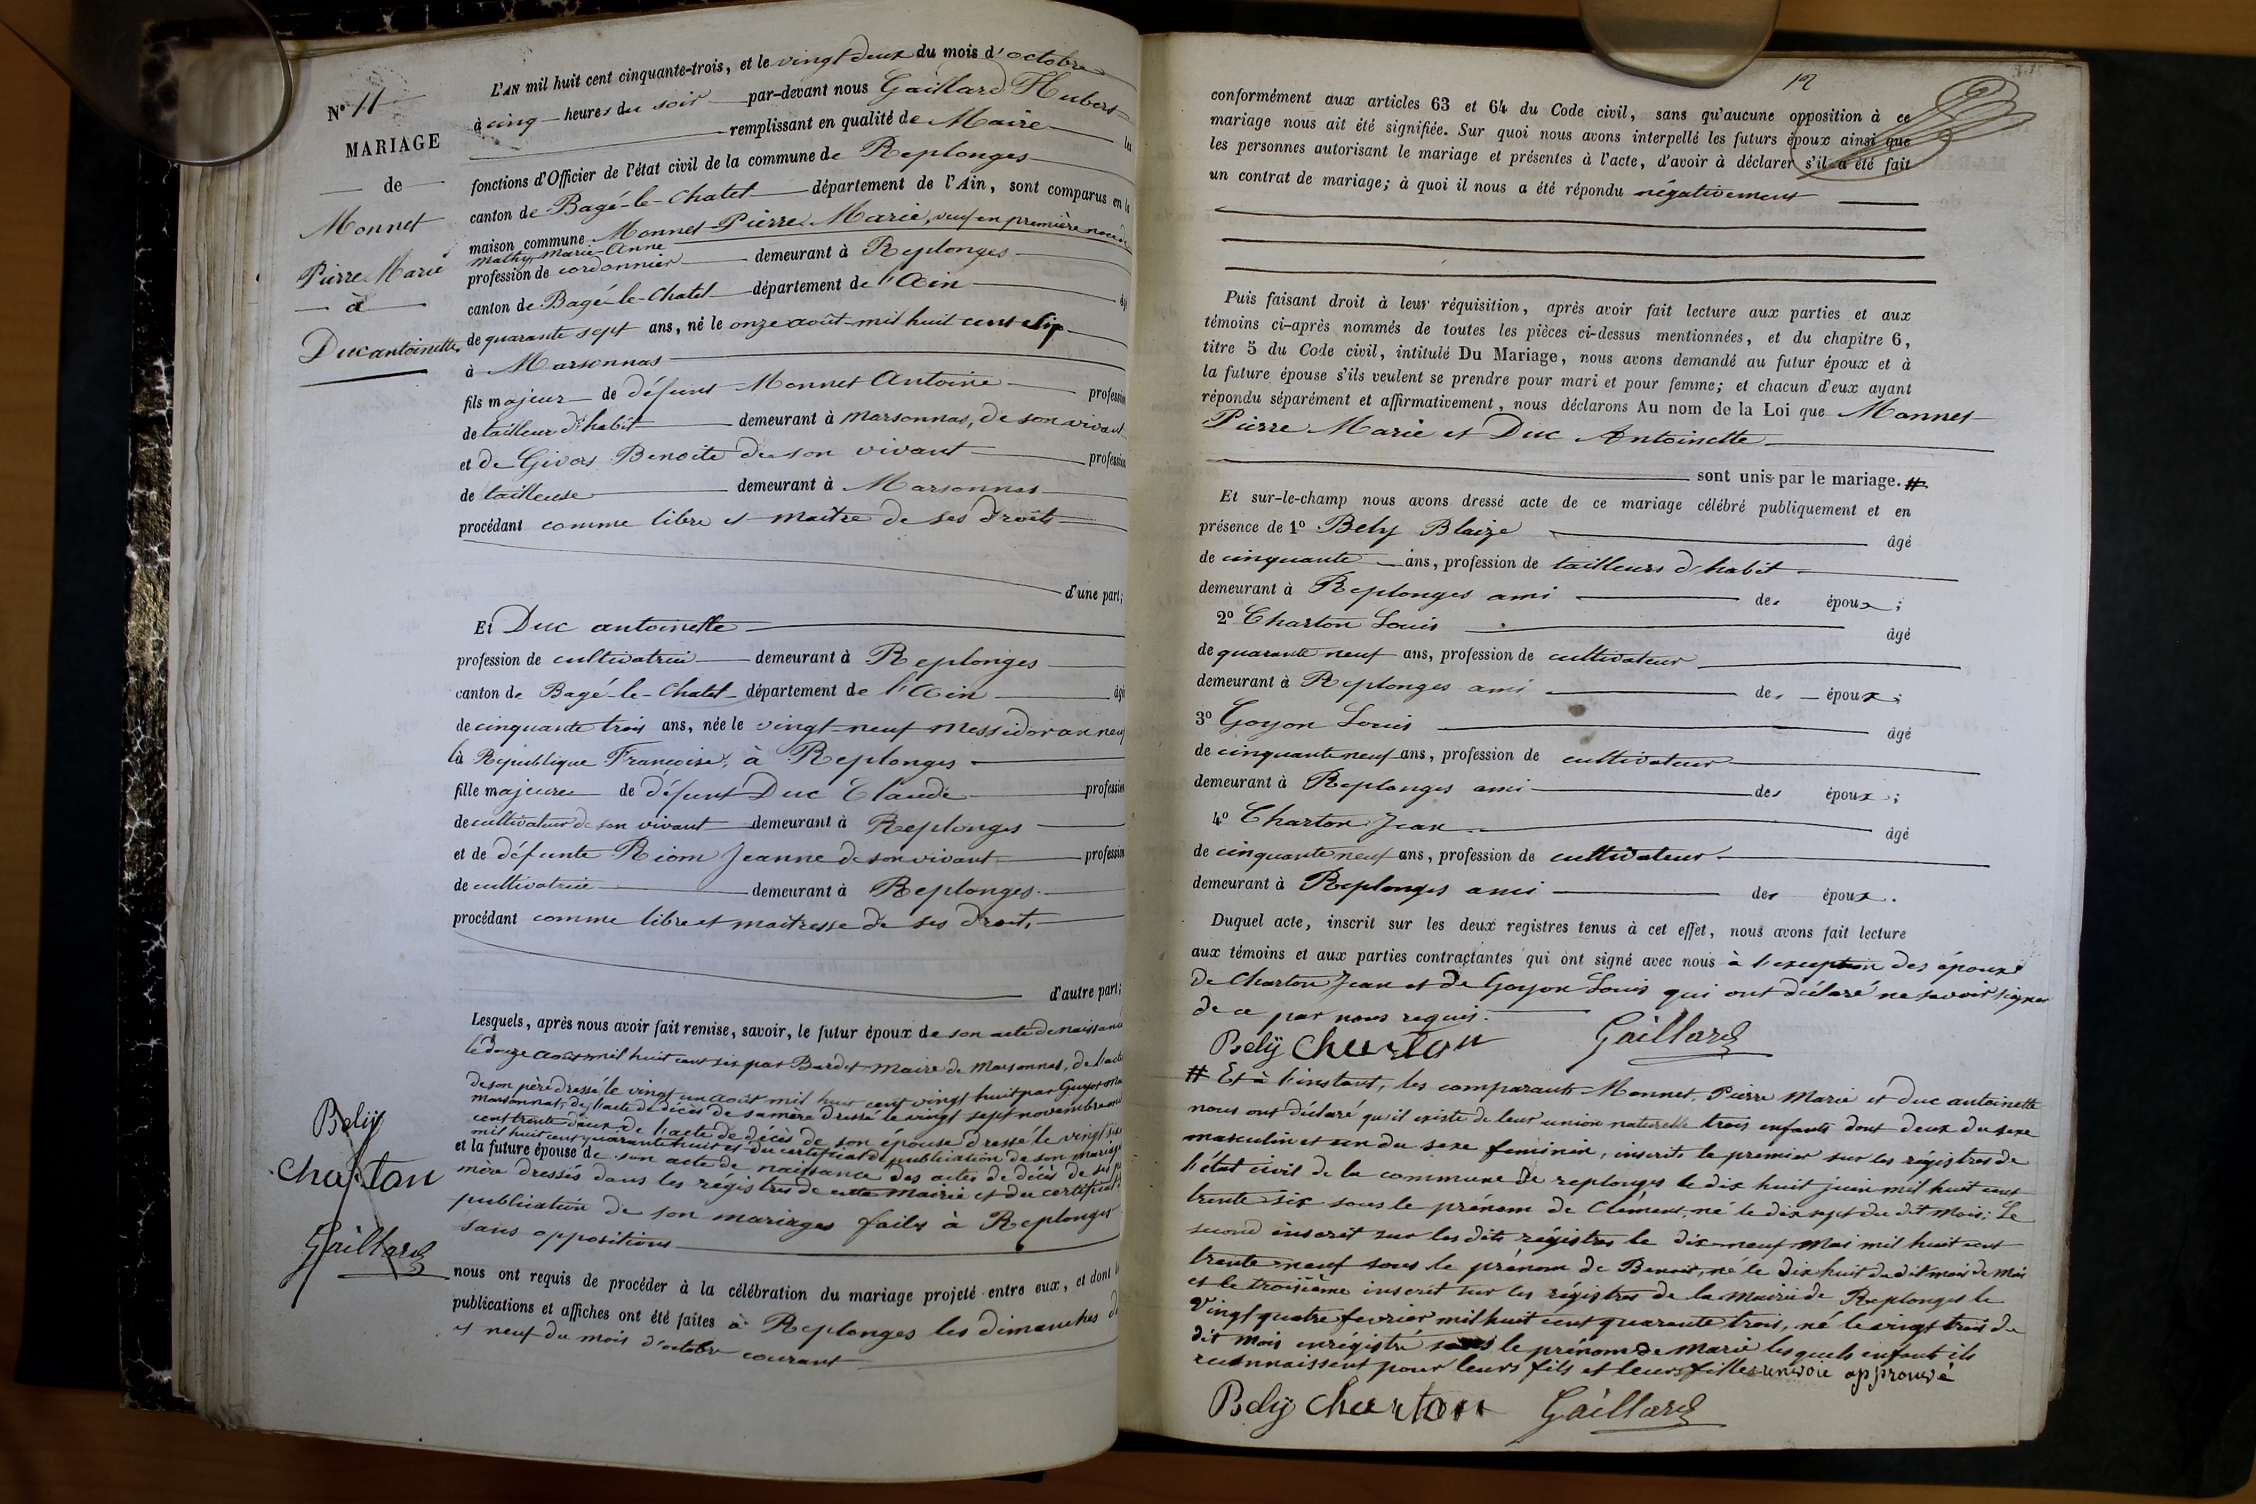 N° 11
MARIAGE
de
Monnet
Pierre Marie
à
Duc antoinette
L'AN mil huit cent cinquante-trois, et le vingt deux du mois d'octobre
à cinq heures du soir par-devant nous Gaillard Hubert
remplissant en qualité de Maire les
fonctions d'Officier de l'état civil de la commune de Replonges
canton de Bagé-le-Chatel département de l'Ain, sont comparus en la
maison commune Monnet Pierre Marie, veuf en première noce de
Mathy Marie-Anne
profession de cordonnier demeurant à Replonges
canton de Bagé-le-Chatel département de l'Ain âgé
de quarante sept ans, né le onze août mil huit cent six
à Marsonnas
fils majeur de défunt Monnet Antoine profession
de tailleur d'habit demeurant à Marsonnas, de son vivant
et de Givors Benoite de son vivant profession
de tailleuse demeurant à Marsonnas
procédant comme libre et maître de ses droits
d'une part;
Et Duc antoinette
profession de cultivatrice demeurant à Replonges
canton de Bagé-le-Chatel département de l'Ain âgé
de cinquante trois ans, née le vingt-neuf Messidor an neuf
la République Francoise, à Replonges
fille majeure de défunt Duc Claude profession
de cultivateur de son vivant demeurant à Replonges
et de défunte Riom Jeanne de son vivant profession
de cultivatrice demeurant à Replonges
procédant comme libre et maitresse de ses droits
d'autre part;
Lesquels, après nous avoir fait remise, savoir, le futur époux de son acte de naissance
le douze août mil huit cent six par Bardet maire de Marsonnas, de l'acte
de son père dressé le vingt un août mil huit cent vingt huit par Guyot
Marsonnas, de l'acte de décès de sa mère dressé le vingt sept novembre mil
cent trente deux, de l'acte de décès de son épouse dressé le vingt
mil huit cent quarante huit et du certificat de publication de son mariage
et la future épouse de son acte de naissance des actes de décès de ses
mère dressés dans les régistres de cette Mairie et du certificat
publication de son mariages faites à Replonges
sans oppositions
nous ont requis de procéder à la célébration du mariage projeté entre eux, et dont les
publications et affiches ont été faites à Replonges les dimanches
et neuf du mois d'octobre courant
Bely
Charton
Gaillard
12
conformément aux articles 63 et 64 du Code civil, sans qu'aucune opposition à ce
mariage nous ait été signifiée. Sur quoi nous avons interpellé les futurs époux ainsi que
les personnes autorisant le mariage et présentes à l'acte, d'avoir à déclarer s'il a été fait
un contrat de mariage; à quoi il nous a été répondu négativement
Puis faisant droit à leur réquisition, après avoir fait lecture aux parties et aux
témoins ci-après nommés de toutes les pièces ci-dessus mentionnées, et du chapitre 6,
titre 5 du Code civil, intitulé Du Mariage, nous avons demandé au futur époux et à
la future épouse s'ils veulent se prendre pour mari et pour femme; et chacun d'eux ayant
répondu séparément et affirmativement, nous déclarons Au nom de la Loi que Monnet
Pierre Marie et Duc Antoinette
sont unis par le mariage. #
Et sur-le-champ nous avons dressé acte de ce mariage célébré publiquement et en
présence de 1° Bely Blaize âgé
de cinquante ans, profession de tailleurs d'habit
demeurant à Replonges ami des époux;
2° Charton Louis âgé
de quarante neuf ans, profession de cultivateur
demeurant à Replonges ami des époux;
3° Goyon Louis âgé
de cinquante neuf ans, profession de cultivateur
demeurant à Replonges ami des époux;
4° Charton Jean âgé
de cinquante neuf ans, profession de cultivateur
demeurant à Replonges ami des époux.
Duquel acte, inscrit sur les deux registres tenus à cet effet, nous avons fait lecture
aux témoins et aux parties contractantes qui ont signé avec nous à l'exception des époux
de Charton Jean et de Goyon Louis qui ont déclaré ne savoir signer
de ce par nous requis.
Bely Charton Gaillard
# Et à l'instant, les comparants Monnet Pierre Marie et Duc antoinette
nous ont déclaré qu'il existe de leur union naturelle trois enfants dont deux du sexe
masculin et un du sexe feminin, inscrits le premier sur les régistres de
l'état civil de la commune de replonges le dix huit juin mil huit cent
trente six sous le prénom de Clément, né le dix sept du dit mois; Le
second inscrit sur les dits régistres le dix-neuf Mai mil huit cent
trente neuf sous le prénom de Benoit, né le dix huit du dit mois de Mai
et le troisième inscrit sur les régistres de la Mairie de Replonges le
vingt quatre fevrier mil huit cent quarante trois, né le vingt trois du
dit mois enrégistré sous le prénom de Marie lesquels enfants ils
reconnaissent pour leurs fils et leurs filles approuvé
Bely Charton Gaillard